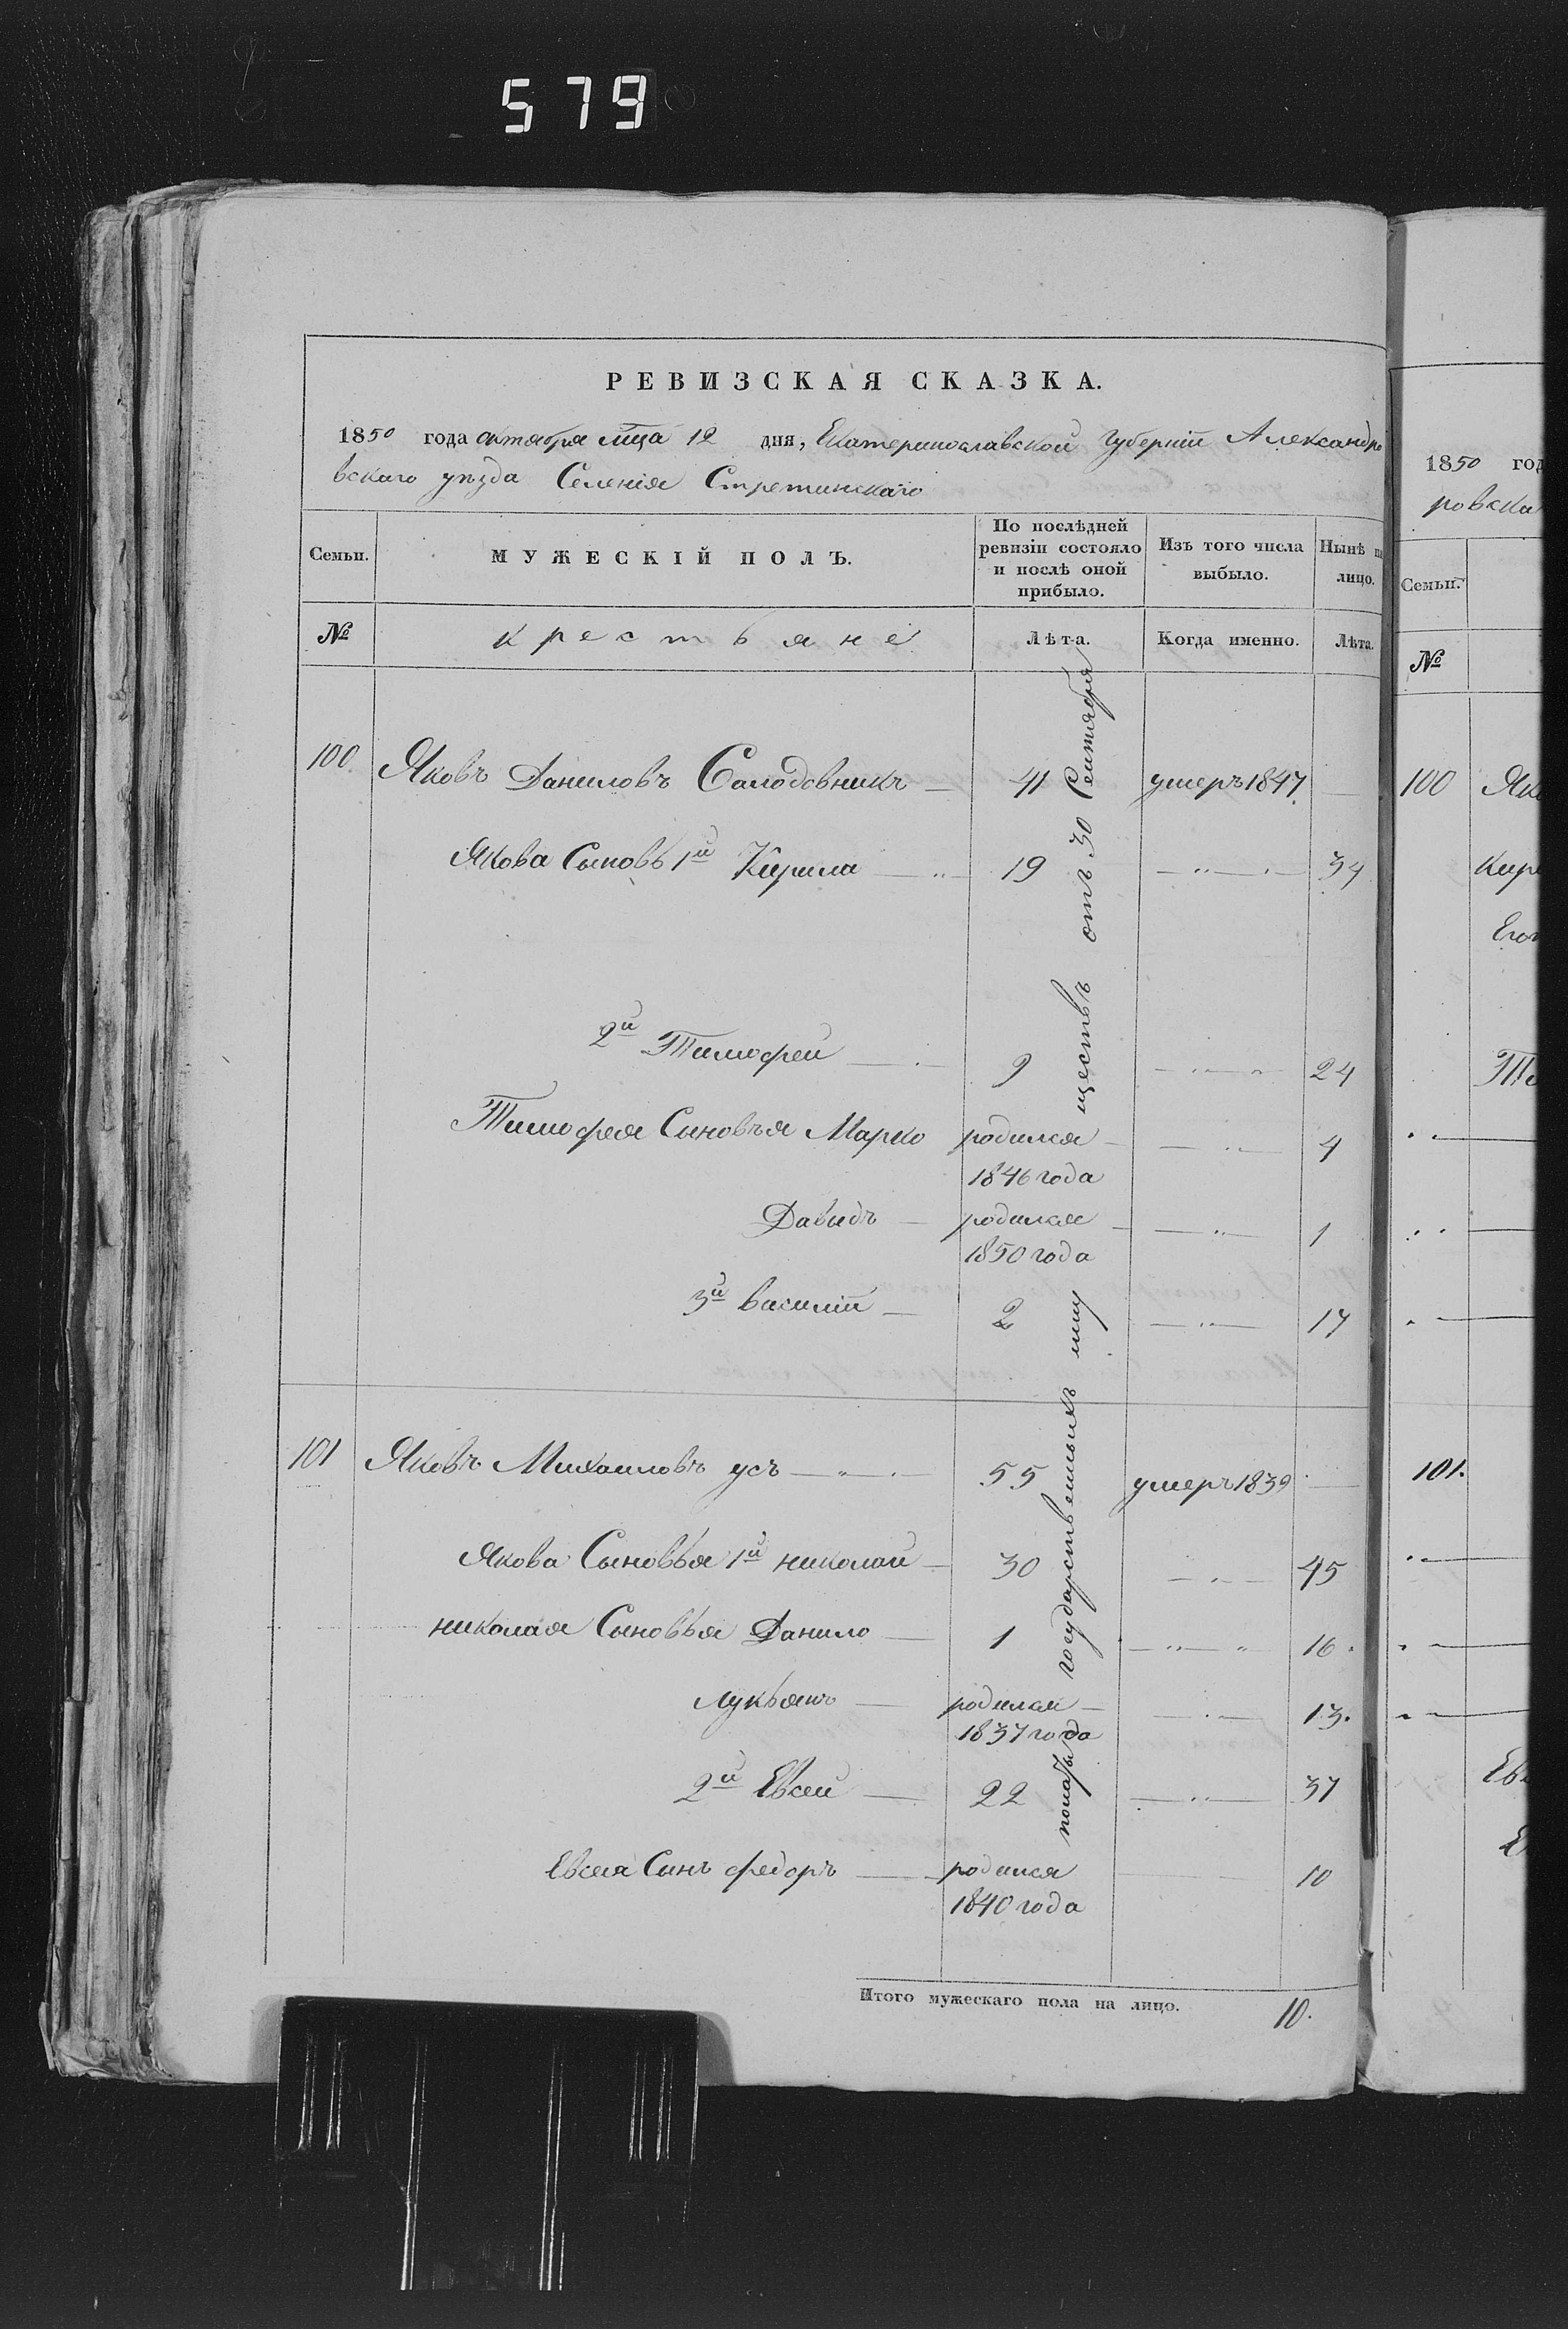 579
РЕВИЗСКАЯ СКАЗКА.
1850 года октября мца 12 дня, Екатеринославской губерніи Александро
вскаго уезда Селенія Стретинскаго
Семьи.
МУЖЕСКІЙ ПОЛЪ.
По послѣдней ревизіи состояло и послѣ оной прибыло.
Изъ того числа выбыло.
Нынѣ на лицо.
№ крестьяне Лѣта. Когда именно. Лѣта.
100. Яковъ Даниловъ Салодовникъ — 41 умеръ 1847. —
Якова Сыновь 1й Кирила — 19 — " — 34
2й Тимофей — 9 — " — 24
Тимофея Сыновъя Марко родился — " — 4
1846 года
Давидъ — родился — " — 1
1850 года
3й василій — 2 — " — 17
101 Яковъ Михаиловъ усъ — 55 умеръ 1839 —
Якова Сыновья 1й николай — 30 — " — 45
николая Сыновья Данило — 1 — " — 16.
Лукьянъ — родился — " — 13.
1837 года
2й Евсей — 22 — " — 37
Евсея Синъ федоръ — родился 10
1840 года
Итого мужескаго пола на лицо. 10.
государственныхъ иму
ществъ отъ 30 Сентября
1850 год
ровска
Семьи.
№
100 Яко
Кири
Его
Ти
101.
Евс